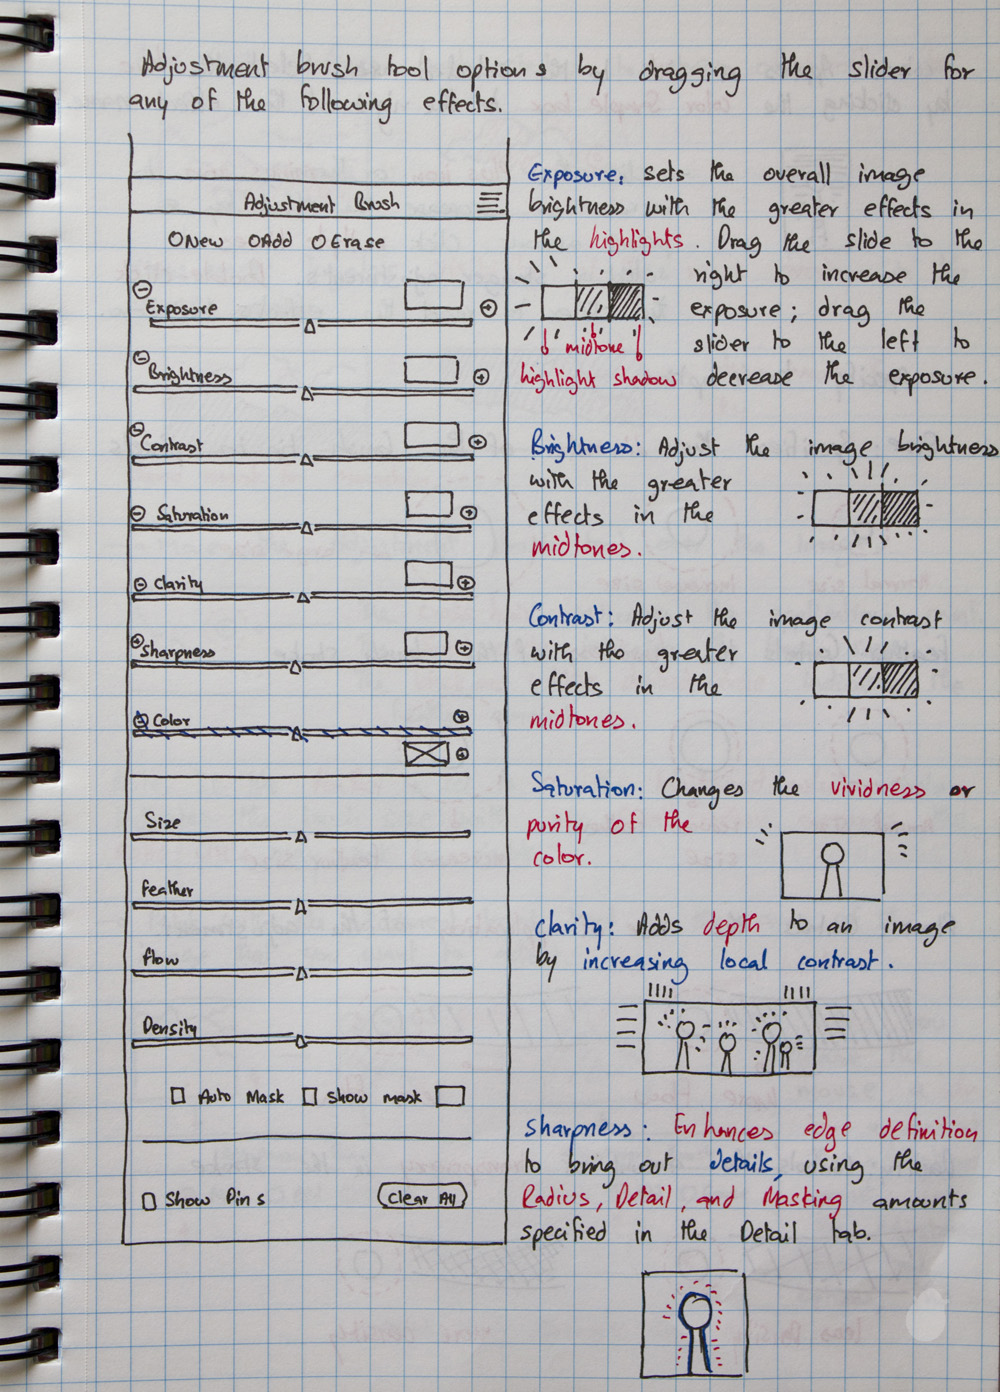 Adjustment brush tool options by dragging the slider for
any of the following effects.
Adjustment Brush
New Add Erase
Exposure
Brightness
Contrast
Saturation
Clarity
Sharpness
Color
Size
Feather
flow
Density
Auto Mask Show mask
Show Pins Clear All
Exposure: sets the overall image
brightness with the greater effects in
the highlights. Drag the slide to the
right to increase the
exposure; drag the
midtone slider to the left to
highlight shadow decrease the exposure.
Brightness: Adjust the image brightness
with the greater
effects in the
midtones.
Contrast: Adjust the image contrast
with the greater
effects in the
midtones.
Saturation: Changes the vividness or
purity of the
color.
Clarity: Adds depth to an image
by increasing local contrast.
Sharpness: Enhances edge definition
to bring out details, using the
Radius, Detail, and Masking amounts
specified in the Detail tab.